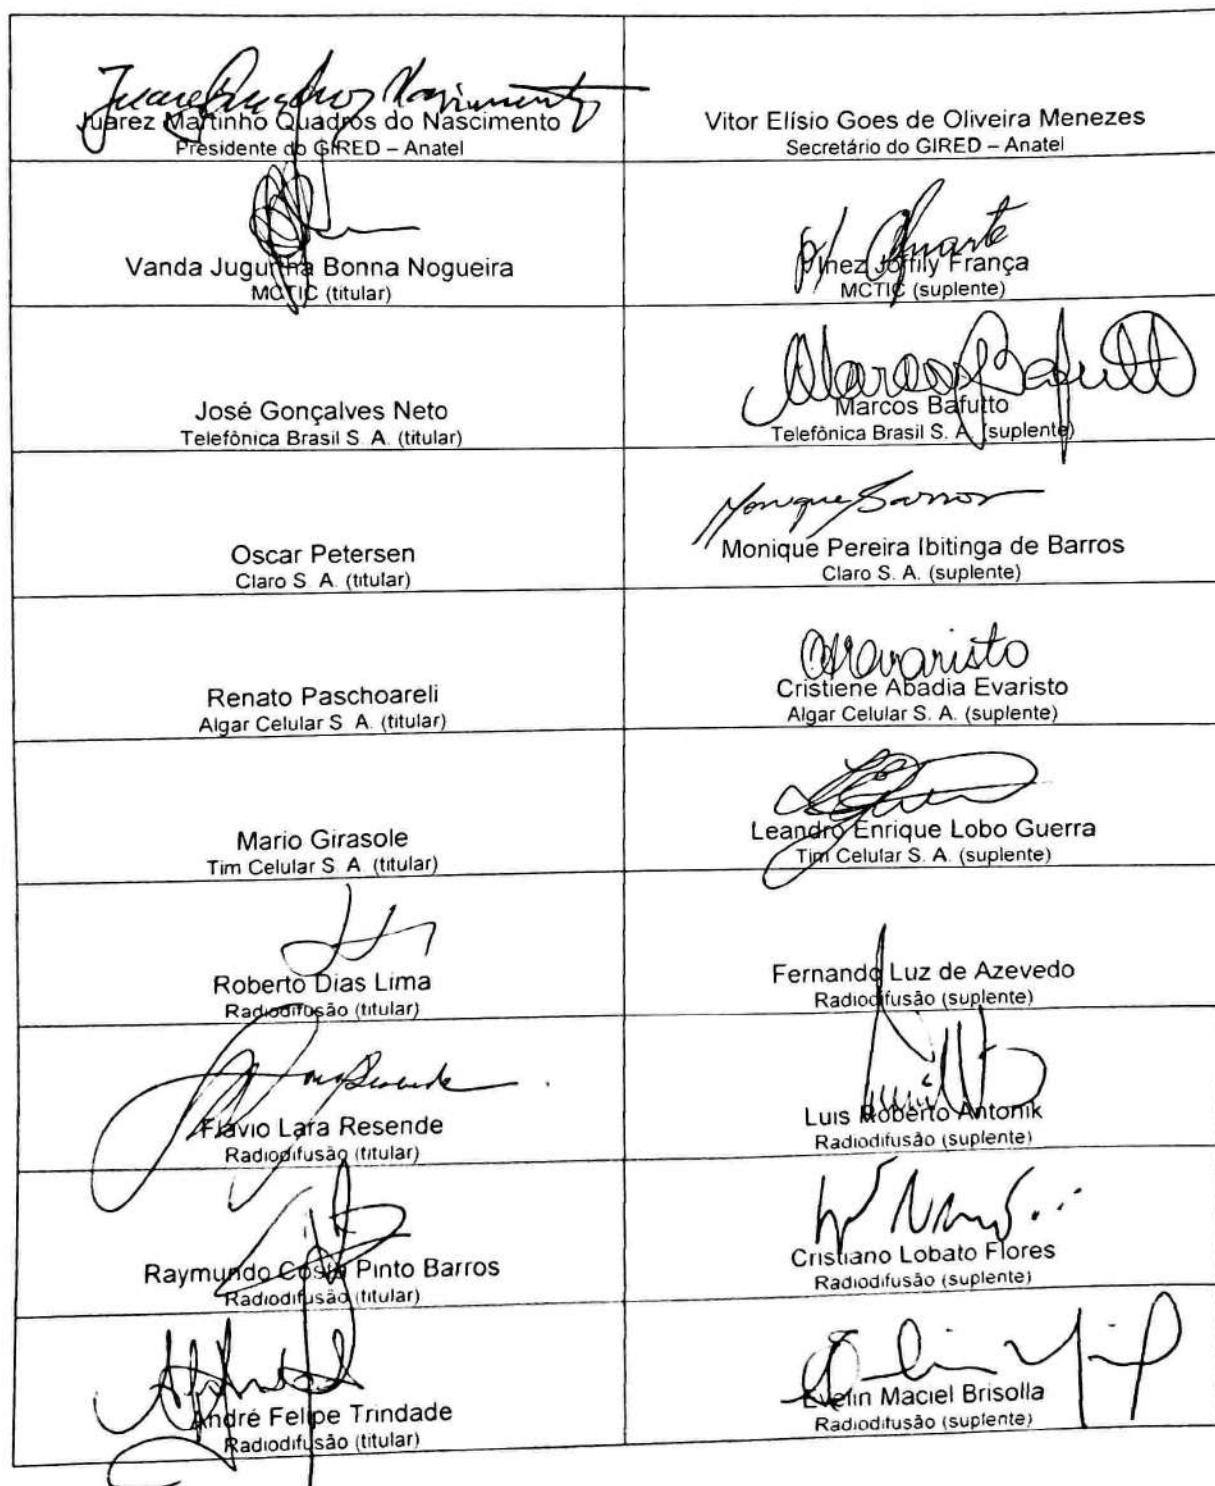 Juarez Martinho Quadros do Nascimento
Presidente do GIRED – Anatel
Vitor Elísio Goes de Oliveira Menezes
Secretário do GIRED – Anatel
Vanda Jugurtha Bonna Nogueira
MCTIC (titular)
p/
Inez Joffily França
MCTIC (suplente)
José Gonçalves Neto
Telefônica Brasil S. A. (titular)
Marcos Bafutto
Marcos Bafutto
Telefônica Brasil S. A. (suplente)
Oscar Petersen
Claro S. A. (titular)
Monique Barros
Monique Pereira Ibitinga de Barros
Claro S. A. (suplente)
Renato Paschoareli
Algar Celular S. A. (titular)
Cristiene Abadia Evaristo
Algar Celular S. A. (suplente)
Mario Girasole
Tim Celular S. A. (titular)
Leandro Enrique Lobo Guerra
Tim Celular S. A. (suplente)
Roberto Dias Lima
Radiodifusão (titular)
Fernando Luz de Azevedo
Radiodifusão (suplente)
Flávio Lara Resende
Radiodifusão (titular)
Luis Roberto Antonik
Radiodifusão (suplente)
Raymundo Costa Pinto Barros
Radiodifusão (titular)
Cristiano Lobato Flores
Radiodifusão (suplente)
André Felipe Trindade
Radiodifusão (titular)
Evelin Maciel Brisolla
Radiodifusão (suplente)